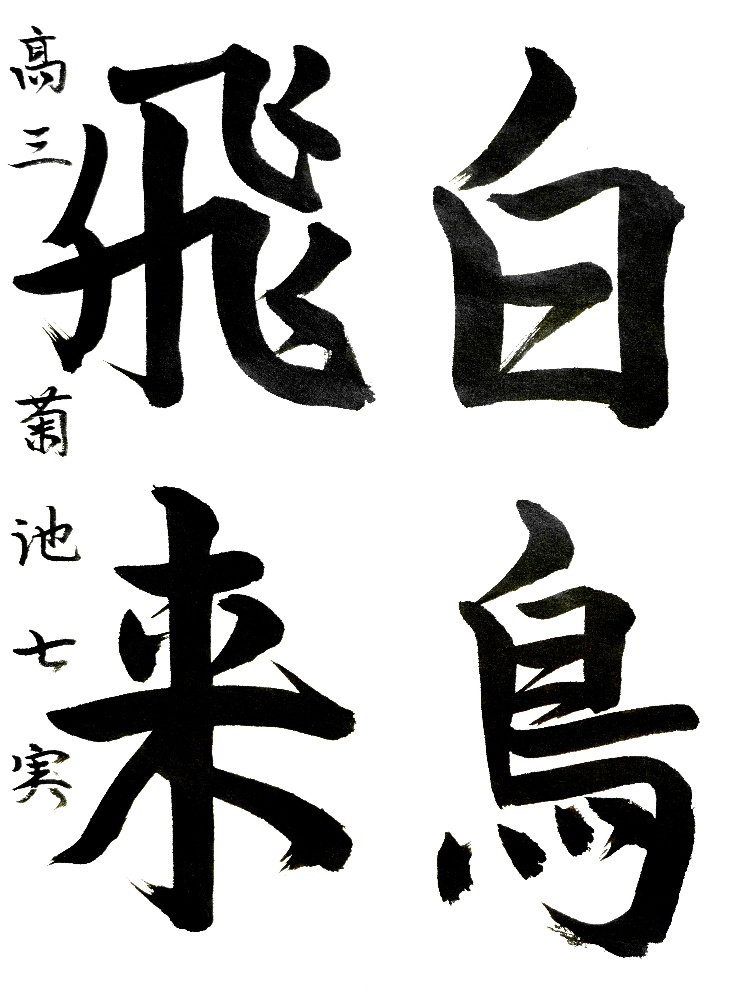 白鳥
飛来
高三 菊池七実